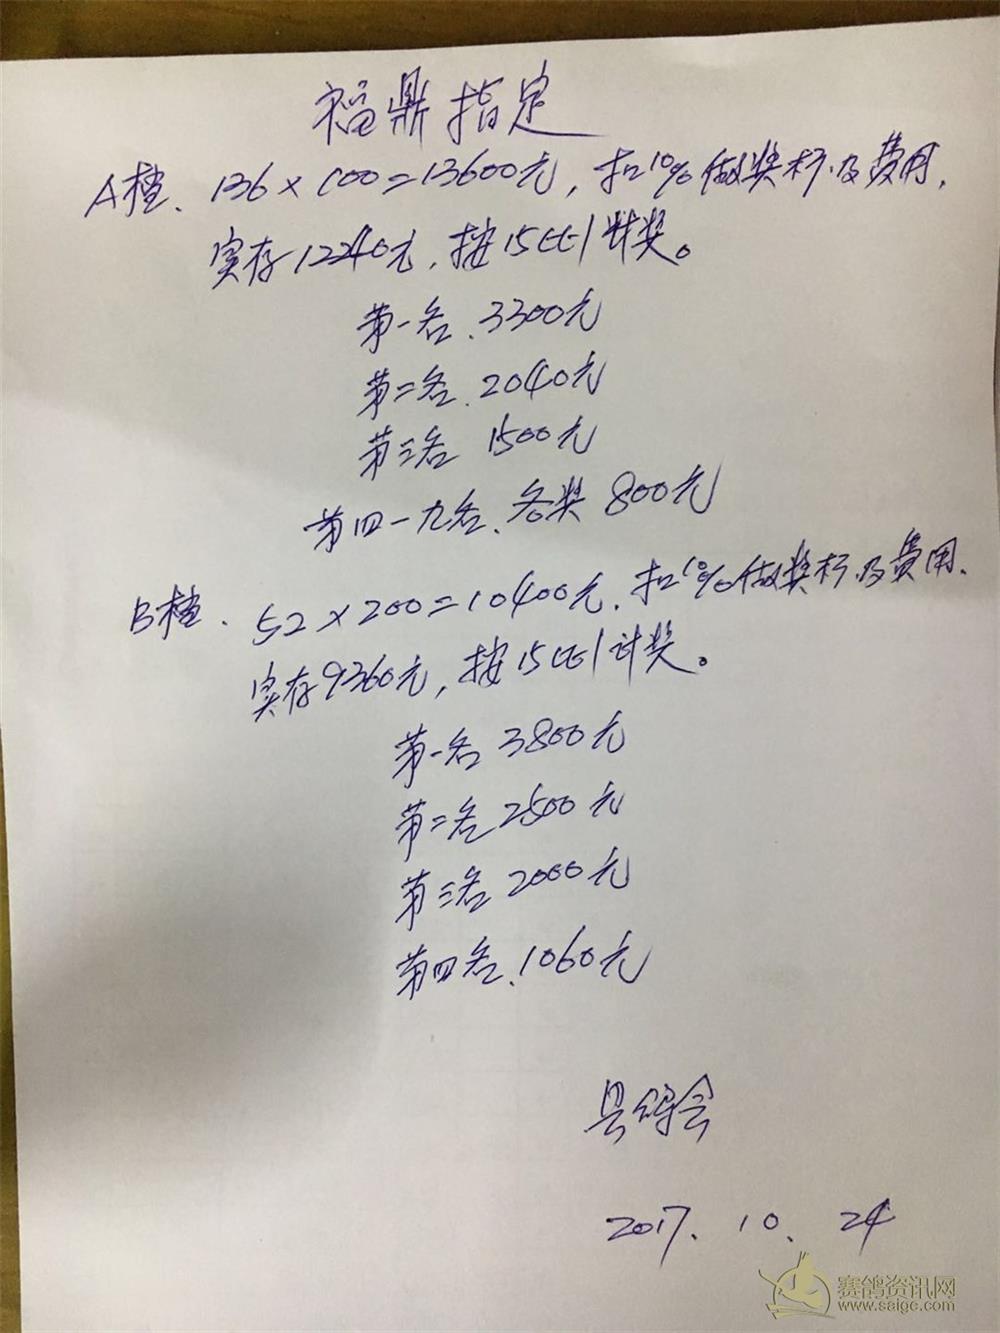 福鼎指定
A档、136×100=13600元,扣10%做奖杯及费用,
实存12240元,按15比1计奖。
第一名、3300元
第二名、2040元
第三名 1500元
第四一九名、各奖800元
B档、52×200=10400元、扣10%做奖杯及费用、
实存9360元,按15比1计奖。
第一名 3800元
第二名 2500元
第三名 2000元
第四名、1060元
县鸽会
2017、10、24
赛鸽资讯网
www.saige.com